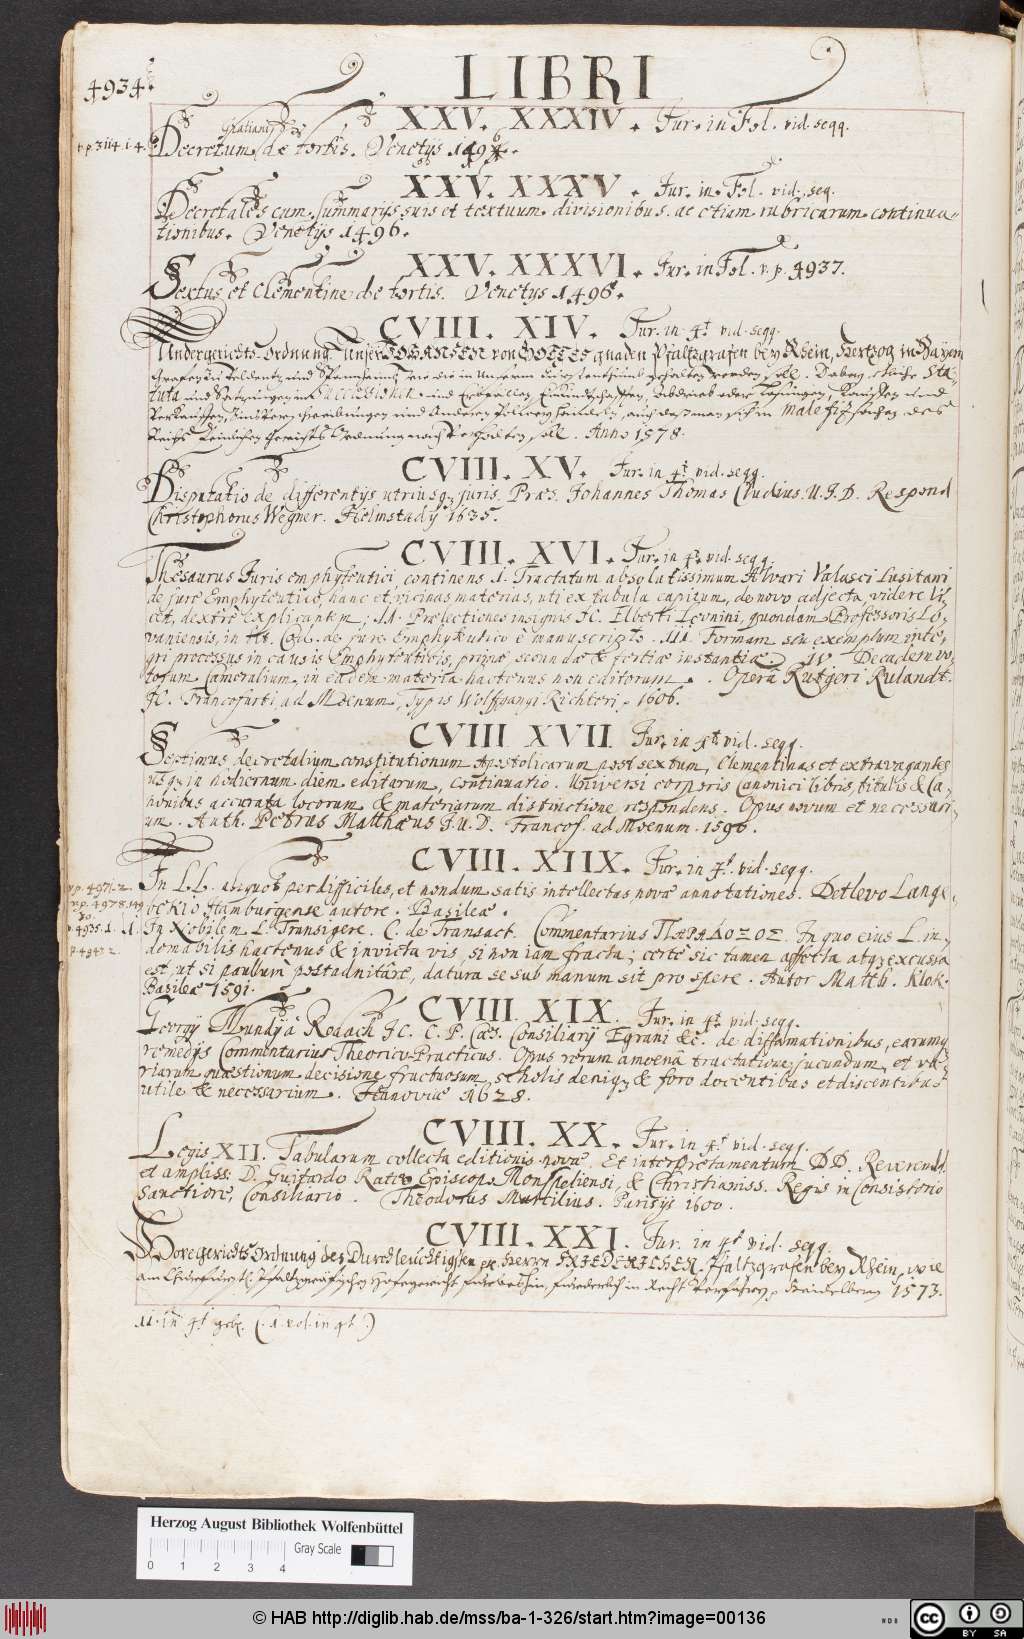 4934.
LIBRI
XXV. XXXIV. Jur. in Fol. vid. seqq.
v. p. 3114. 1. 4.
Gratiani
Decretum de tortis. Venetijs 1496.
XXV. XXXV. Jur. in Fol. vid. seq.
Decretales cum summarijs suis et textuum divisionibus. ac etiam rubricarum continua-
tionibus. Venetijs 1496.
XXV. XXXVI. Jur. in Fol. v. p. 4937.
Sextus et Clementine de tortis. Venetijs 1496.
CVIII. XIV. Jur. in 4t. vid. seqq.
Undergerichts Ordnung Unser JOHANSEN von GOTTES gnaden Pfaltzgrafen bey Rhein, Hertzog in Bayern
Grafen zu Veldentz und Spanheim, wie die in Unserm Fürstenthumb gehalten werden soll. Dabey etliche Sta-
tuta und Satzungen von Successionen und Erbfällen,
Reichs Peinlichen Gerichts Ordnung halten soll. Anno 1578.
CVIII. XV. Jur. in 4t. vid. seqq.
Disputatio de differentijs utriusq; juris. Præs. Johannes Thomas Cludius. U. J. D. Respond
Christophorus Wegner. Helmstadij 1635.
CVIII. XVI. Jur. in 4t. vid. seqq.
Thesaurus Juris emphyteutici, continens I. Tractatum absolutissimum Alvari Valasci Lusitani
de jure Emphyteutico, hanc et vicinas materias, uti ex tabula capitum, de novo adjecta, videre li-
cet, dextrè explicantem, II. Prælectiones insignis JC. Elberti Leonini, quondam Professoris Lo-
vaniensis, in tit. Cod. de jure Emphyteutico è manuscripto. III. Formam seu exemplum inte-
gri processus in causis Emphyteuticis, primæ secundæ & tertiæ instantiæ IV Decadem vo-
torum Cameralium in eadem materia hactenus non editorum. Operâ Rutgeri Rulandt.
JC. Francofurti, ad Moenum, Typis Wolffgangi Richteri, 1606.
CVIII XVII Jur. in 4t. vid. seqq.
Septimus, decretalium constitutionum Apostolicarum post sextum, Clementinas et extravagantes
usq; in hodiernum diem editarum, continuatio. Universi corporis Canonici libris, titulis & Ca-
nonibus accurata locorum & materiarum distinctione respondens. Opus novum et necessari-
um. Auth. Petrus Matthæus J. U. D. Francof. ad Moenum. 1596.
CVIII. XIIX. Jur. in 4t. vid. seqq.
v. p. 4971. 2.
v. p. 4978. 149
In LL. aliquot perdifficiles, et nondum satis intellectas novæ annotationes. Detlevo Lange-
bekio Hamburgense autore. Basileæ.
4935. 1. 1.
In Nobilem L. Transigere. C. de Transact. Commentarius ΠΑΡΑΔΟΞΟΣ. In quo eius L. in-
domabilis hactenus & invicta vis, si non iam fracta; certe sic tamen affecta atq; excussa
est, ut si paulum postadnitare, datura se sub manum sit prospere. Autor Matth. Klok.
Basileæ 1591.
CVIII. XIX. Jur. in 4t. vid. seqq.
Georgij Mundij à Rodach JC. C. P. Cæs. Consiliarij Egrani &c. de diffamationibus, earumq;
remedijs Commentarius Theorico-Practicus. Opus rerum amoenâ tractatione jucundum, et va-
riarum quæstionum decisione fructuosum, scholis deniq; & foro docentibus et discentibus
utile & necessarium. Hanoviæ 1628.
CVIII. XX. Jur. in 4t. vid. seqq.
Legis XII. Tabularum collecta editionis novæ. Et interpretamentum DD. Reverendd.
et ampliss. D. Guitardo Ratio Episcopo Monspeliensi, & Christianiss. Regis in Consistorio
Sanctiore, Consiliario. Theodorus Martilius. Parisijs 1600.
CVIII. XXI. Jur. in 4t. vid. seqq.
Hovegerichts Ordnung des Durchleuchtigsten etc. Herrn FRIEDERICHEN. Pfaltzgrafen bey Rhein, wie
am Churfürstl. Pfaltzgräfischen Hofegericht Heidelberg 1573.
11. in 4t. geb. (. 1 vol. in 4t.)
Herzog August Bibliothek Wolfenbüttel
Gray Scale
0 1 2 3 4
© HAB http://diglib.hab.de/mss/ba-1-326/start.htm?image=00136
WDB
CC BY SA